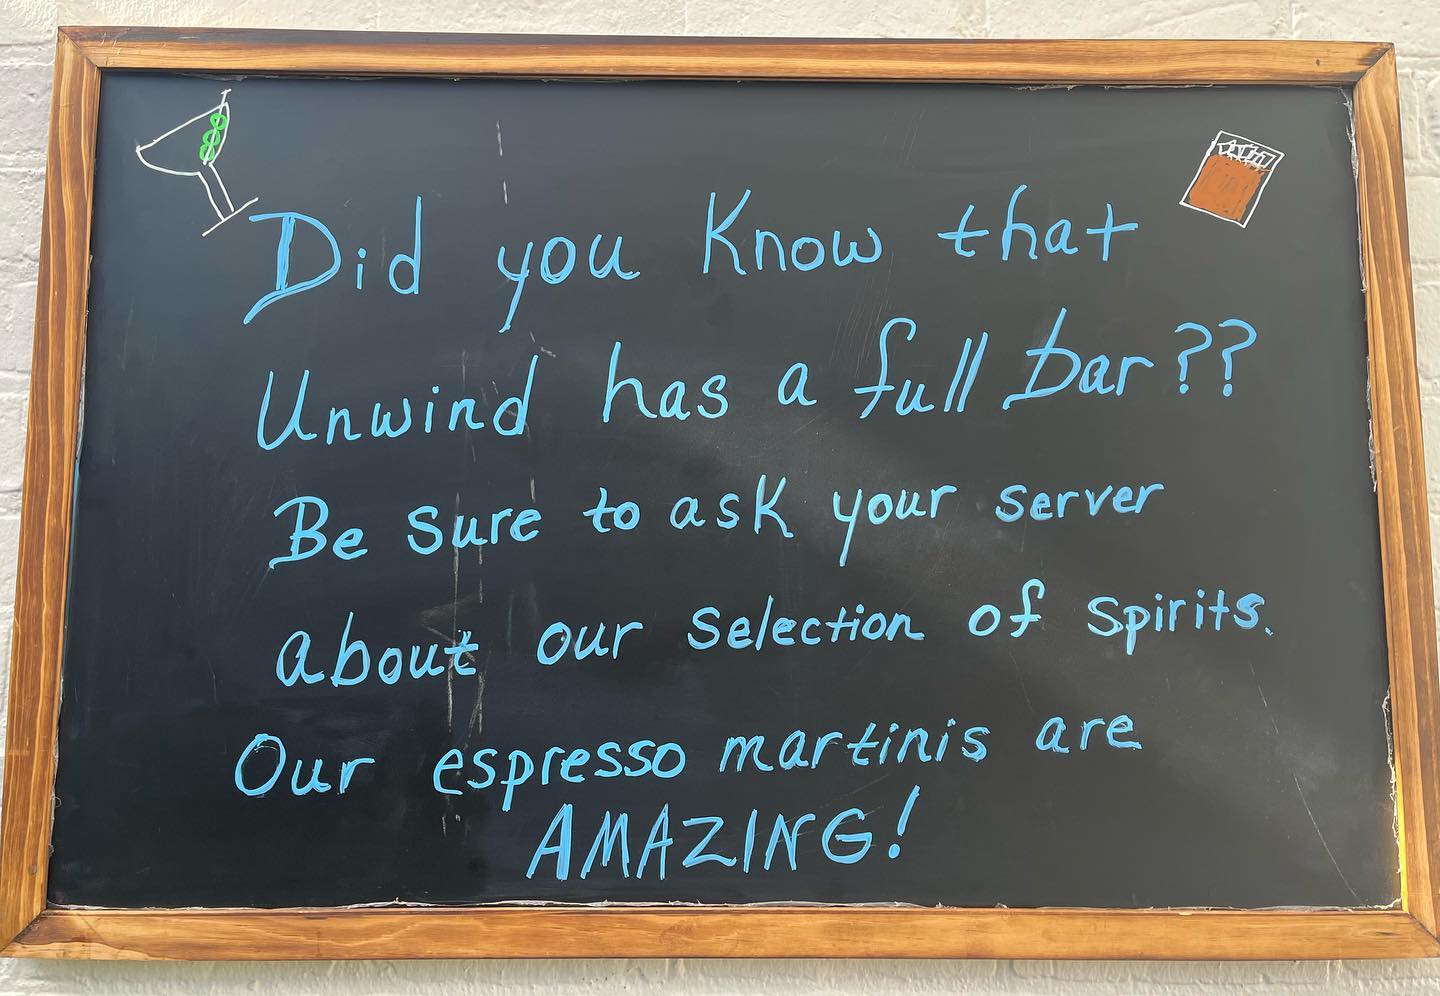 Did you Know that
Unwind has a full bar??
Be sure to ask your server
about our selection of spirits.
Our espresso martinis are
AMAZING!